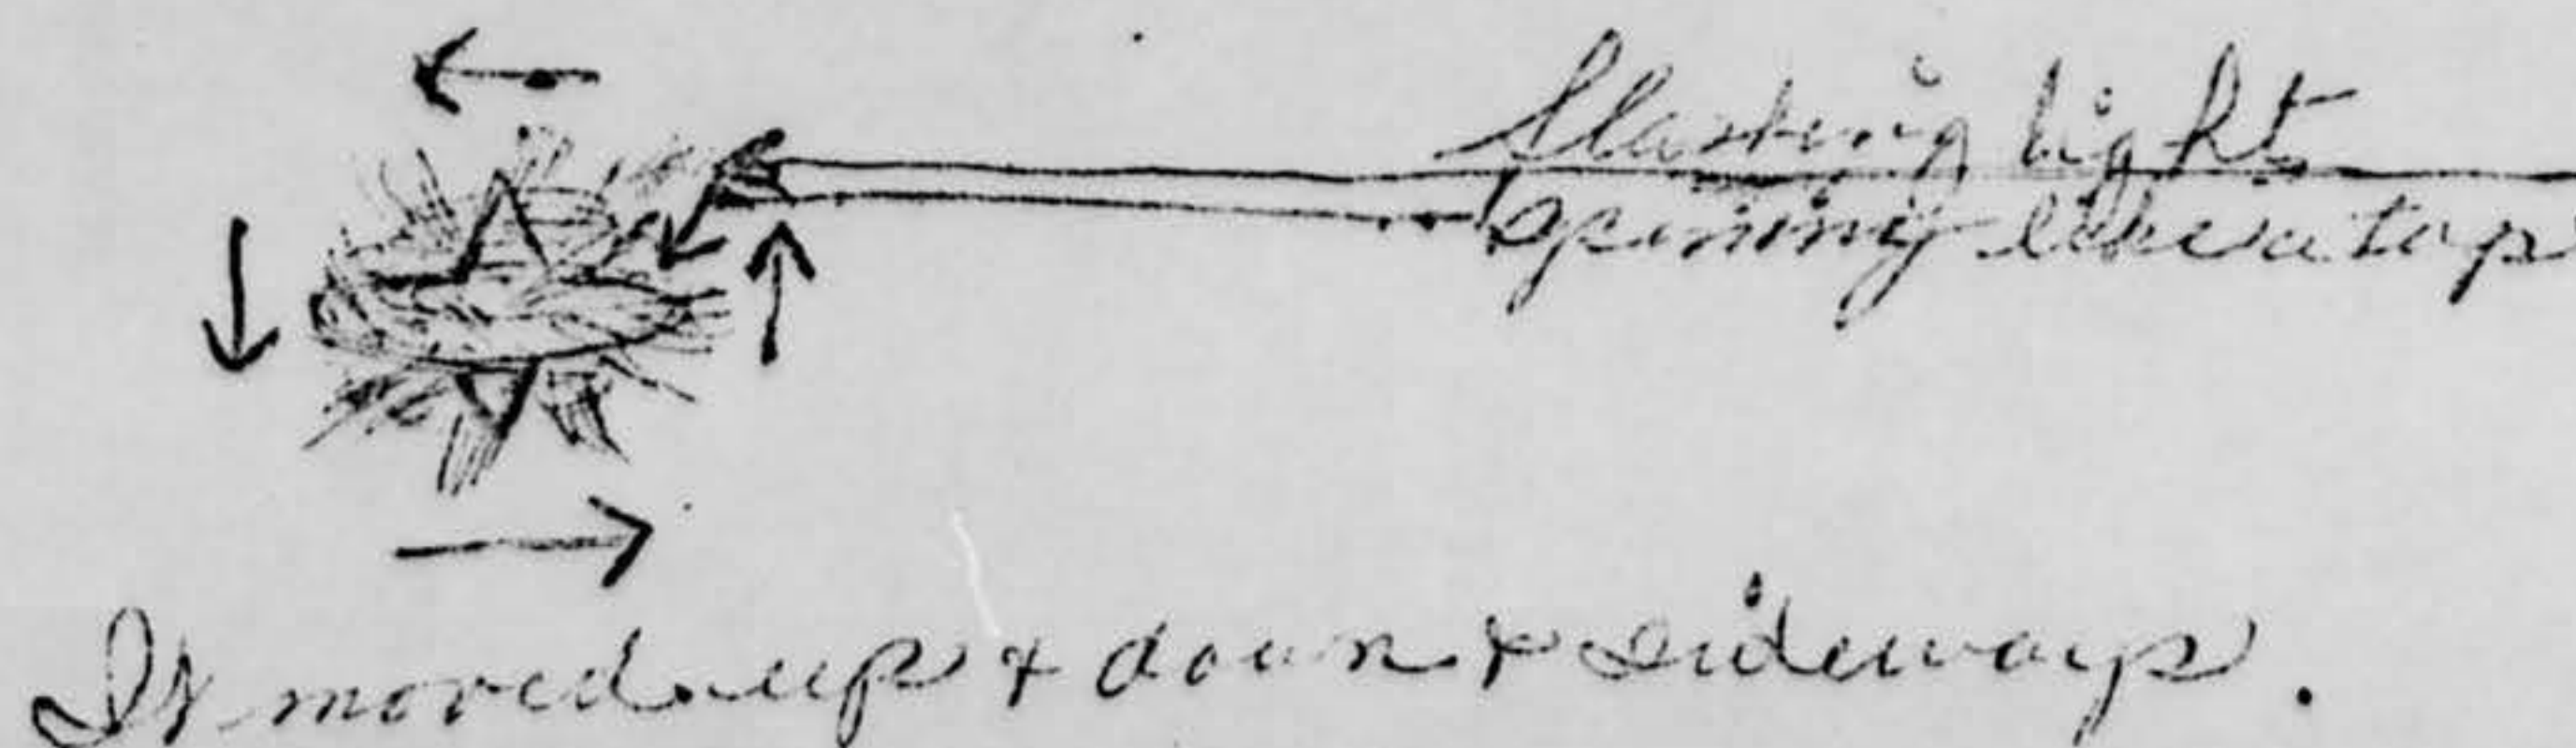 Flashing light
Spinning like a top
It moved up & down & sideways.